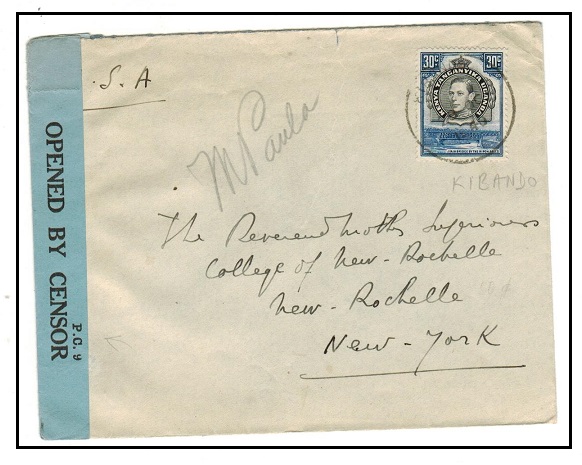 .S.A
30c 30c
KENYA TANGANYIKA UGANDA
M Paula
KIBANDO
The Reverend Moth. Superiors
College of New-Rochelle
New-Rochelle
New-York
OPENED BY CENSOR
P.C. 9